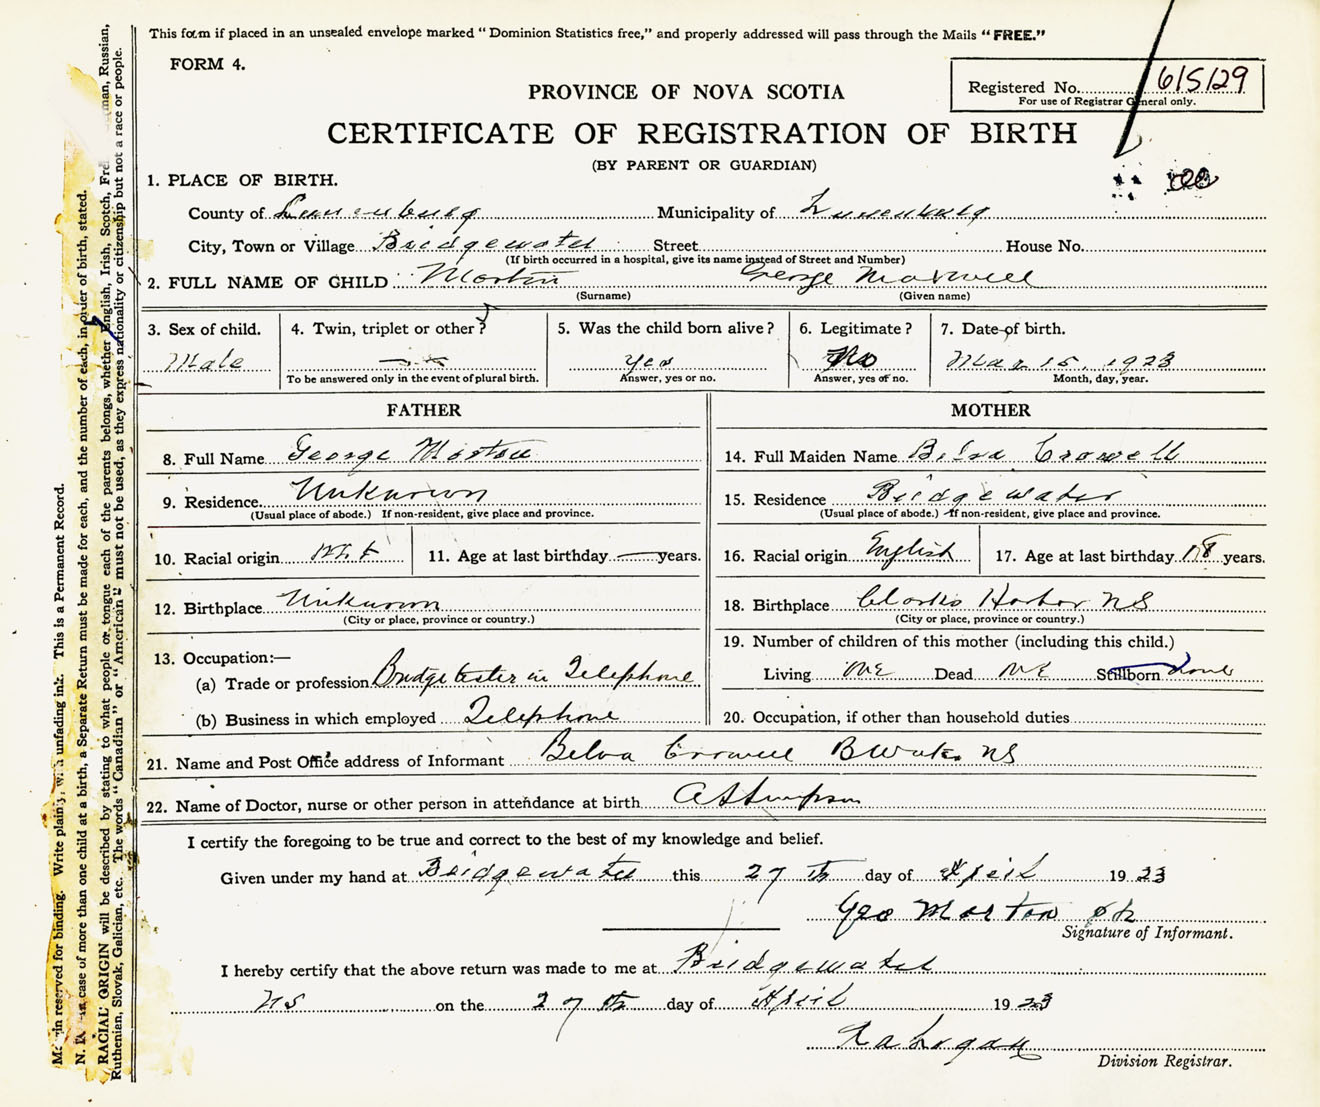 This form if placed in an unsealed envelope marked "Dominion Statistics free," and properly addressed will pass through the Mails "FREE."
FORM 4.
Registered No. 615129
For use of Registrar General only.
PROVINCE OF NOVA SCOTIA
CERTIFICATE OF REGISTRATION OF BIRTH
(BY PARENT OR GUARDIAN)
1. PLACE OF BIRTH.
County of Lunenburg Municipality of Lunenburg
City, Town or Village Bridgewater Street House No.
(If birth occurred in a hospital, give its name instead of Street and Number)
2. FULL NAME OF CHILD Morton George Maxwell
(Surname) (Given name)
3. Sex of child. 4. Twin, triplet or other? 5. Was the child born alive? 6. Legitimate? 7. Date of birth.
Male yes No Mar 15, 1923
To be answered only in the event of plural birth. Answer, yes or no. Answer, yes or no. Month, day, year.
FATHER MOTHER
8. Full Name George Morton 14. Full Maiden Name Belva Crowell
9. Residence Unknown 15. Residence Bridgewater
(Usual place of abode.) If non-resident, give place and province. (Usual place of abode.) If non-resident, give place and province.
10. Racial origin 11. Age at last birthday — years. 16. Racial origin English 17. Age at last birthday 18 years.
12. Birthplace Unknown 18. Birthplace Clarks Harbor NS
(City or place, province or country.) (City or place, province or country.)
13. Occupation:— 19. Number of children of this mother (including this child.)
(a) Trade or profession in Telephone Living ONE Dead Stillborn none
(b) Business in which employed Telephone 20. Occupation, if other than household duties
21. Name and Post Office address of Informant Belva Crowell BWater NS
22. Name of Doctor, nurse or other person in attendance at birth
I certify the foregoing to be true and correct to the best of my knowledge and belief.
Given under my hand at Bridgewater this 27 th day of April 1923
Geo Morton
Signature of Informant.
I hereby certify that the above return was made to me at Bridgewater
NS on the 27 th day of April 1923
Logan
Division Registrar.
Margin reserved for binding. Write plainly, with unfading ink. This is a Permanent Record.
N. B. In case of more than one child at a birth, a Separate Return must be made for each, and the number of each, in order of birth, stated.
RACIAL ORIGIN will be described by stating to what people or tongue each of the parents belongs, whether English, Irish, Scotch, Russian,
Ruthenian, Slovak, Galician, etc. The words "Canadian" or "American" must not be used, as they express nationality or citizenship but not a race or people.